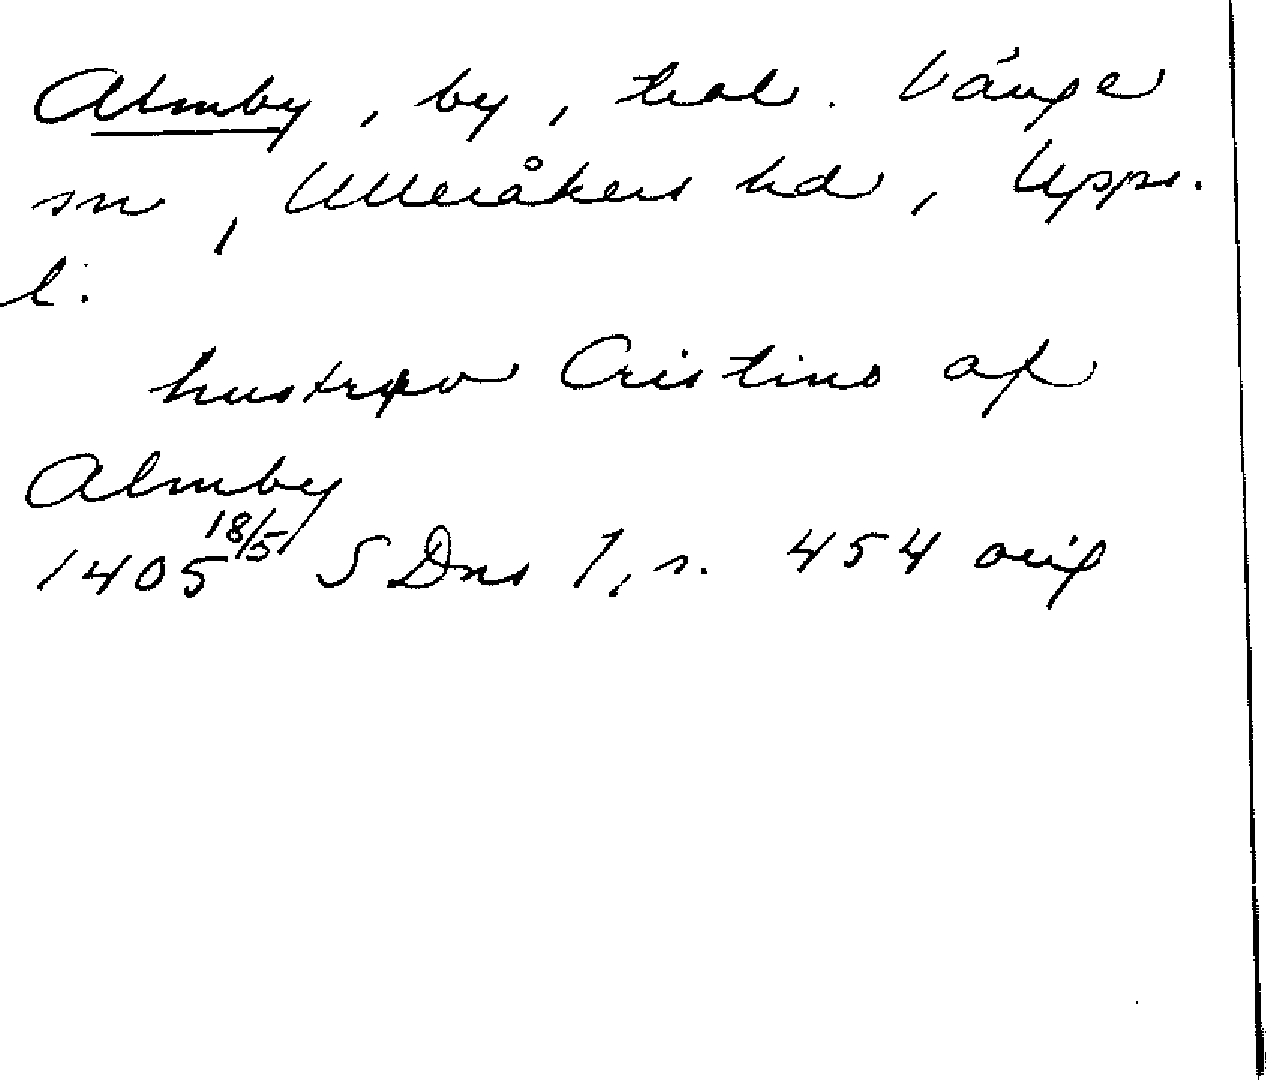 Almby, by, trol. Vänge
sn, Ulleråkers hd, Upps.
l.
hustrpo Cristino af
Almby
1405 18/5 SDns 1, s. 454 orig